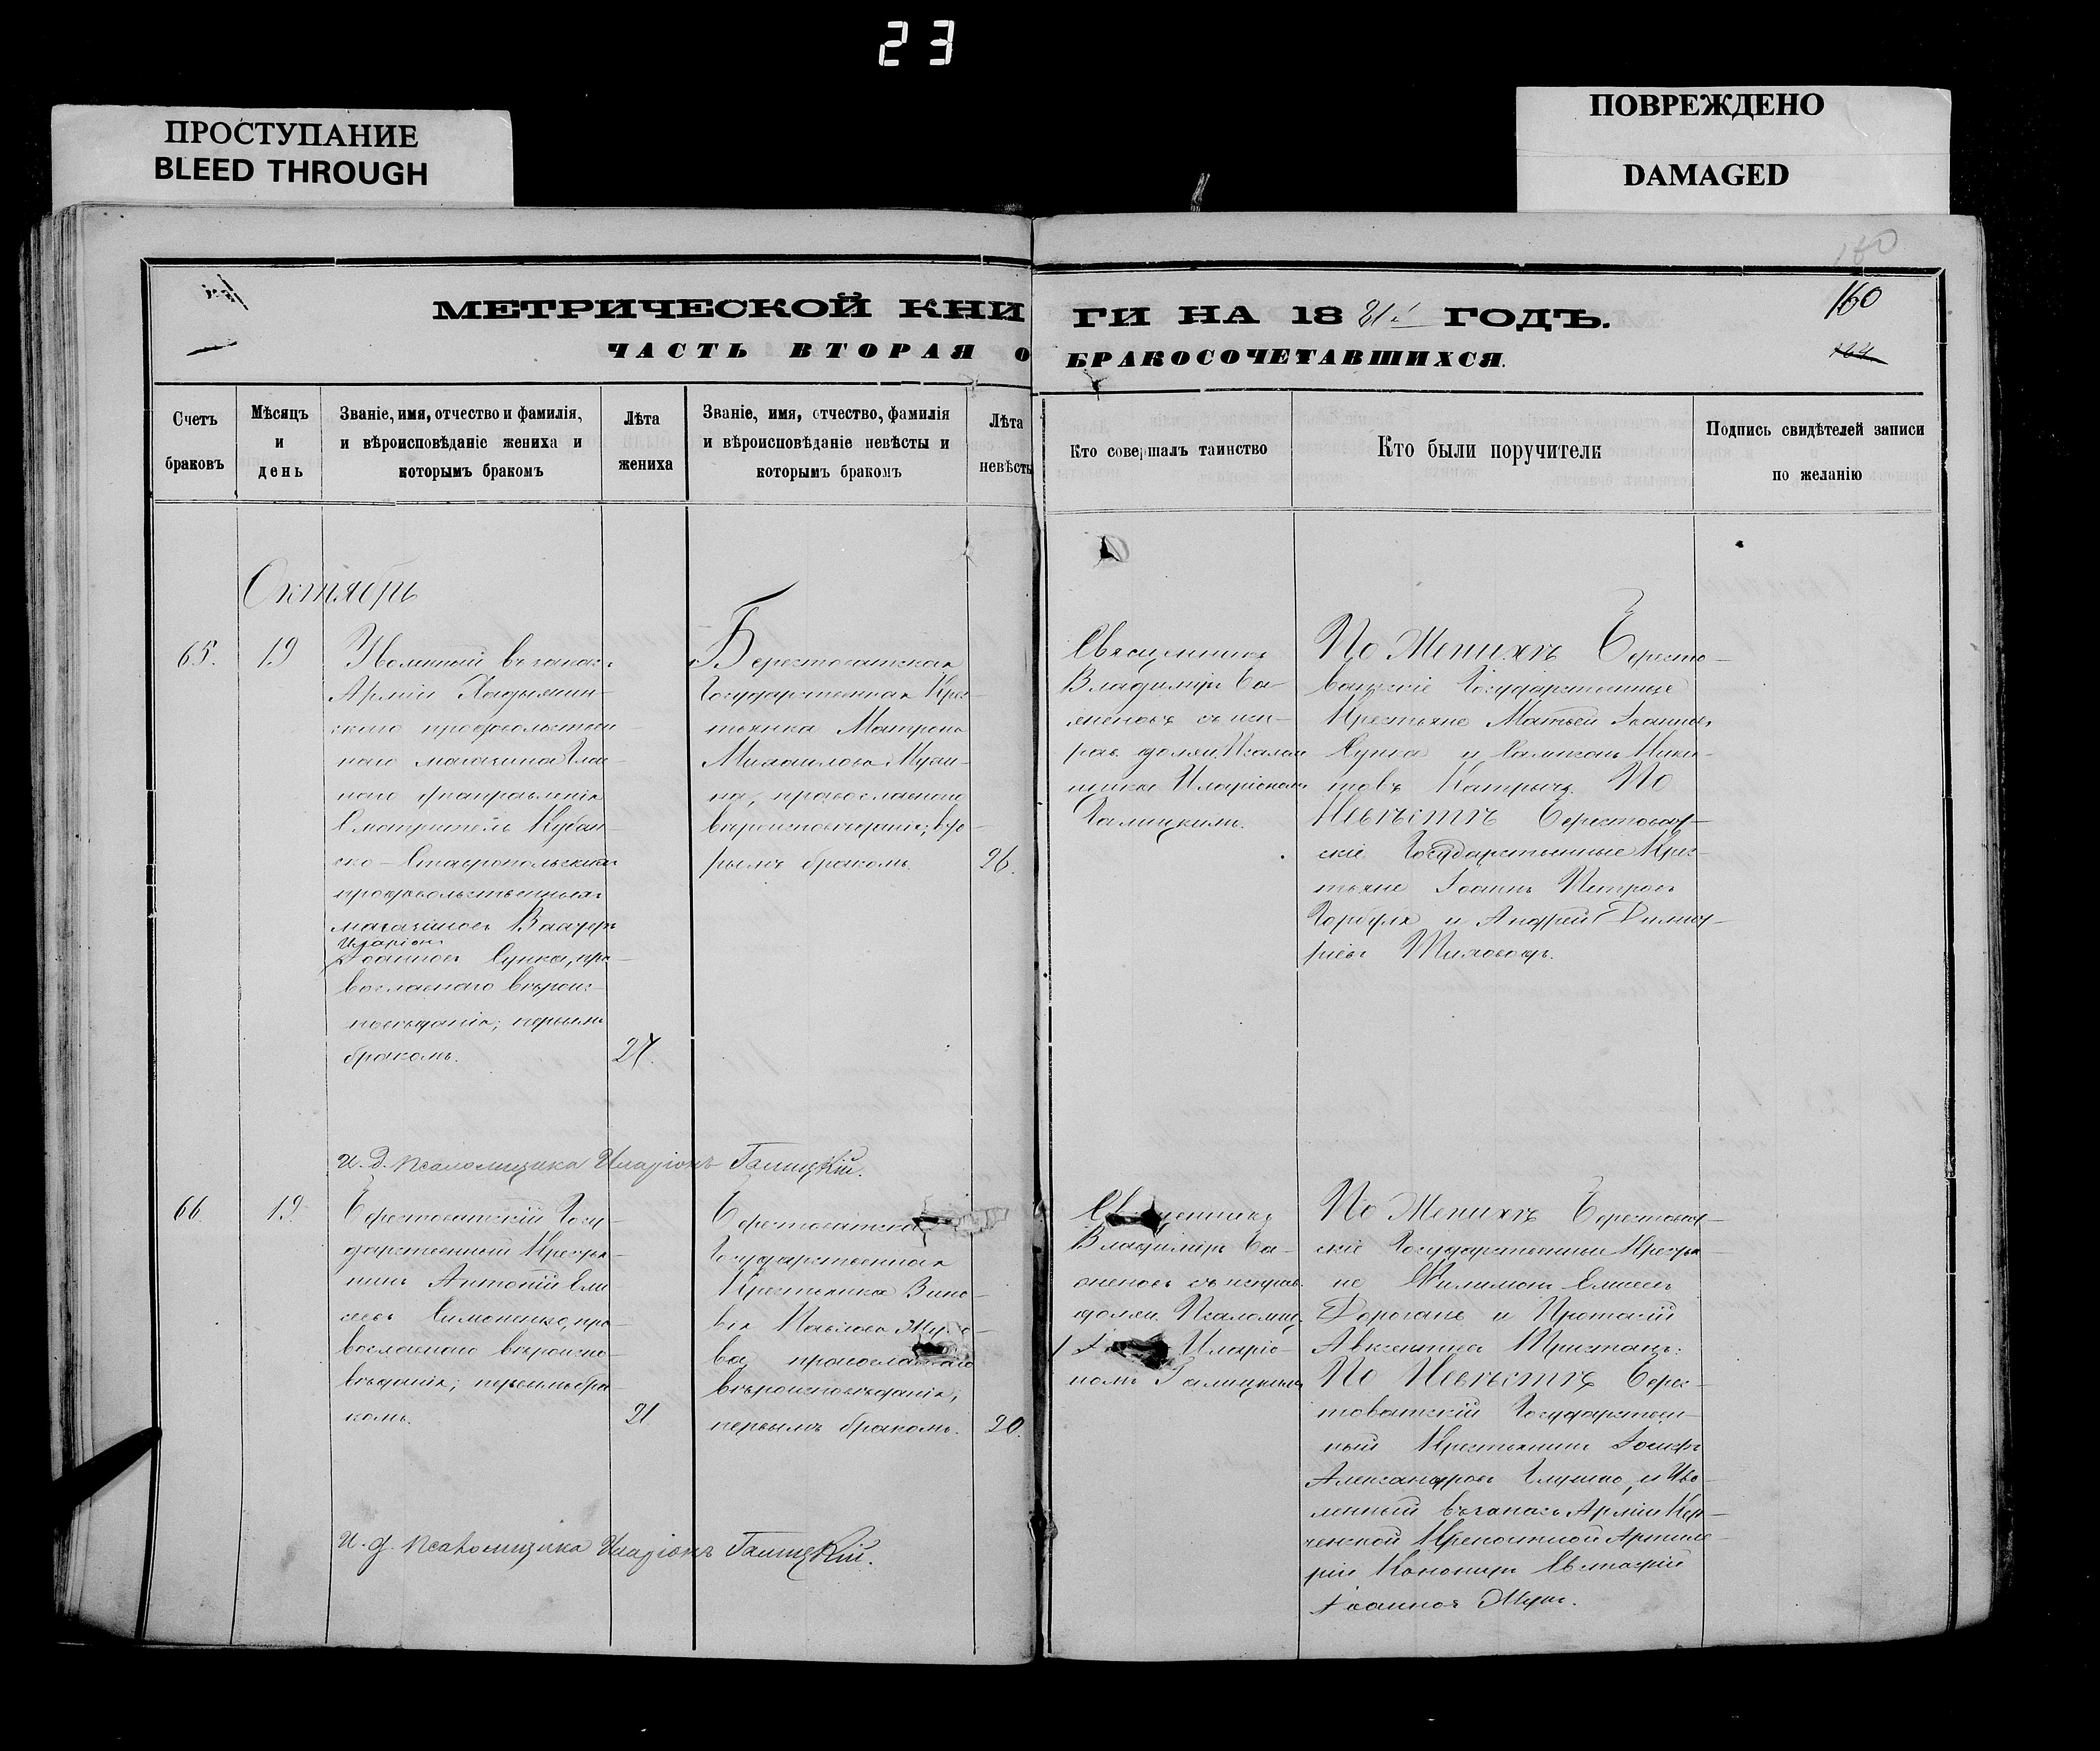 23
ПРОСТУПАНИЕ
BLEED THROUGH
ПОВРЕЖДЕНО
DAMAGED
160
160
МЕТРИЧЕСКОЙ КНИГИ НА 18 ГОДЪ.
ЧАСТЬ ВТОРАЯ О БРАКОСОЧЕТАВШИХСЯ.
Счетъ браковъ
Мѣсяцъ и день
Званіе, имя, отчество и фамилія,
и вѣроисповѣданіе жениха и
которымъ бракомъ
Лѣта жениха
Званіе, имя, отчество, фамилія
и вѣроисповѣданіе невѣсты и
которымъ бракомъ
Лѣта невѣсты
Кто совершалъ таинство
Кто были поручители
Подпись свидѣтелей записи
по желанію
Октябрь
65.
19
Уволенный въ запасъ
Арміи
скаго продовольствен-
наго магазина
наго управленія
Смотритель Кубан-
ско-Ставропольскихъ
продовольственныхъ
магазиновъ
Иларіонъ
Іоанновъ Супка, пра-
вославнаго вѣроис-
повѣданія; первымъ
бракомъ.
27.
Берестоватская
Государственная Крес-
тьянка Матрона
Михаилова
православнаго
вѣроисповѣданія; вто-
рымъ бракомъ.
26.
Священникъ
Владиміръ Ба-
женовъ съ исп-
рав. должн. Псалом-
щика Иларіономъ
Галицкимъ.
По Женихѣ Бересто-
ватскіе Государственные
Крестьяне Матвей Іоанновъ
Супка и Сампсонъ Ники-
товъ Катрычъ. По
Невѣстѣ Берестоват-
скіе Государственные Крес-
тьяне Іоаннъ Петровъ
Горбуля и Андрей Димит-
ріевъ Тиховодъ.
И. д. псаломщика Иларіонъ Галицкій.
66
19
Берестоватскій Госу-
дарственный Крестья-
нинъ Антоній Ели-
сеевъ Симоненко, пра-
вославнаго вѣроиспо-
вѣданія; первымъ бра-
комъ.
21
Берестоватская
Государственная
Крестьянка Зино-
вія Павлова
православнаго
вѣроисповѣданія,
первымъ бракомъ.
20.
Священникъ
Владиміръ Ба-
женовъ съ исправ.
должн. Псаломщ.
Иларіо-
номъ Галицкимъ
По Женихѣ Берестоват-
скіе Государственные Крестья-
не Филимонъ Елисеевъ
Дорогань и Протасій
Авксентіевъ Тристанъ:
По Невѣстѣ Берес-
товатскій Государствен-
ный Крестьянинъ Іосифъ
Александровъ Глушко, и Уво-
ленный въ запасъ Арміи Кер-
ченской Крепостной Артиле-
ріи Канониръ Евстафій
Іоанновъ
И. д. псаломщика Иларіонъ Галицкій.